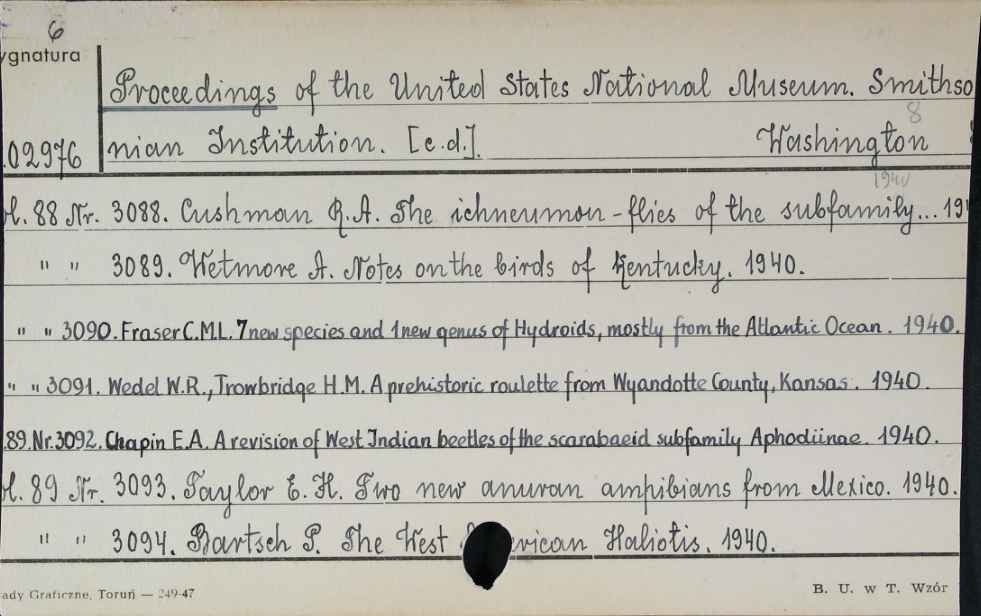 6
ygnatura
Proceedings of the United States National Museum. Smithso
8
02976 nian Institution. [e.d.]. Washington
1940
l. 88 Nr. 3088. Cushman R.A. The ichneumon-flies of the subfamily... 19
" " 3089. Wetmore A. Notes on the birds of Kentucky. 1940.
" " 3090. Fraser C.M.L. 7 new species and 1 new genus of Hydroids, mostly from the Atlantic Ocean. 1940.
" " 3091. Wedel W.R., Trowbridge H.M. A prehistoric roulette from Wyandotte County, Kansas. 1940.
.89. Nr. 3092. Chapin E.A. A revision of West Indian beetles of the scarabaeid subfamily Aphodiinae. 1940.
l. 89 Nr. 3093. Taylor E.H. Two new anuran ampibians from Mexico. 1940.
" " 3094. Bartsch P. The West erican Haliotis. 1940.
ady Graficzne, Toruń — 249-47 B. U. w T. Wzór